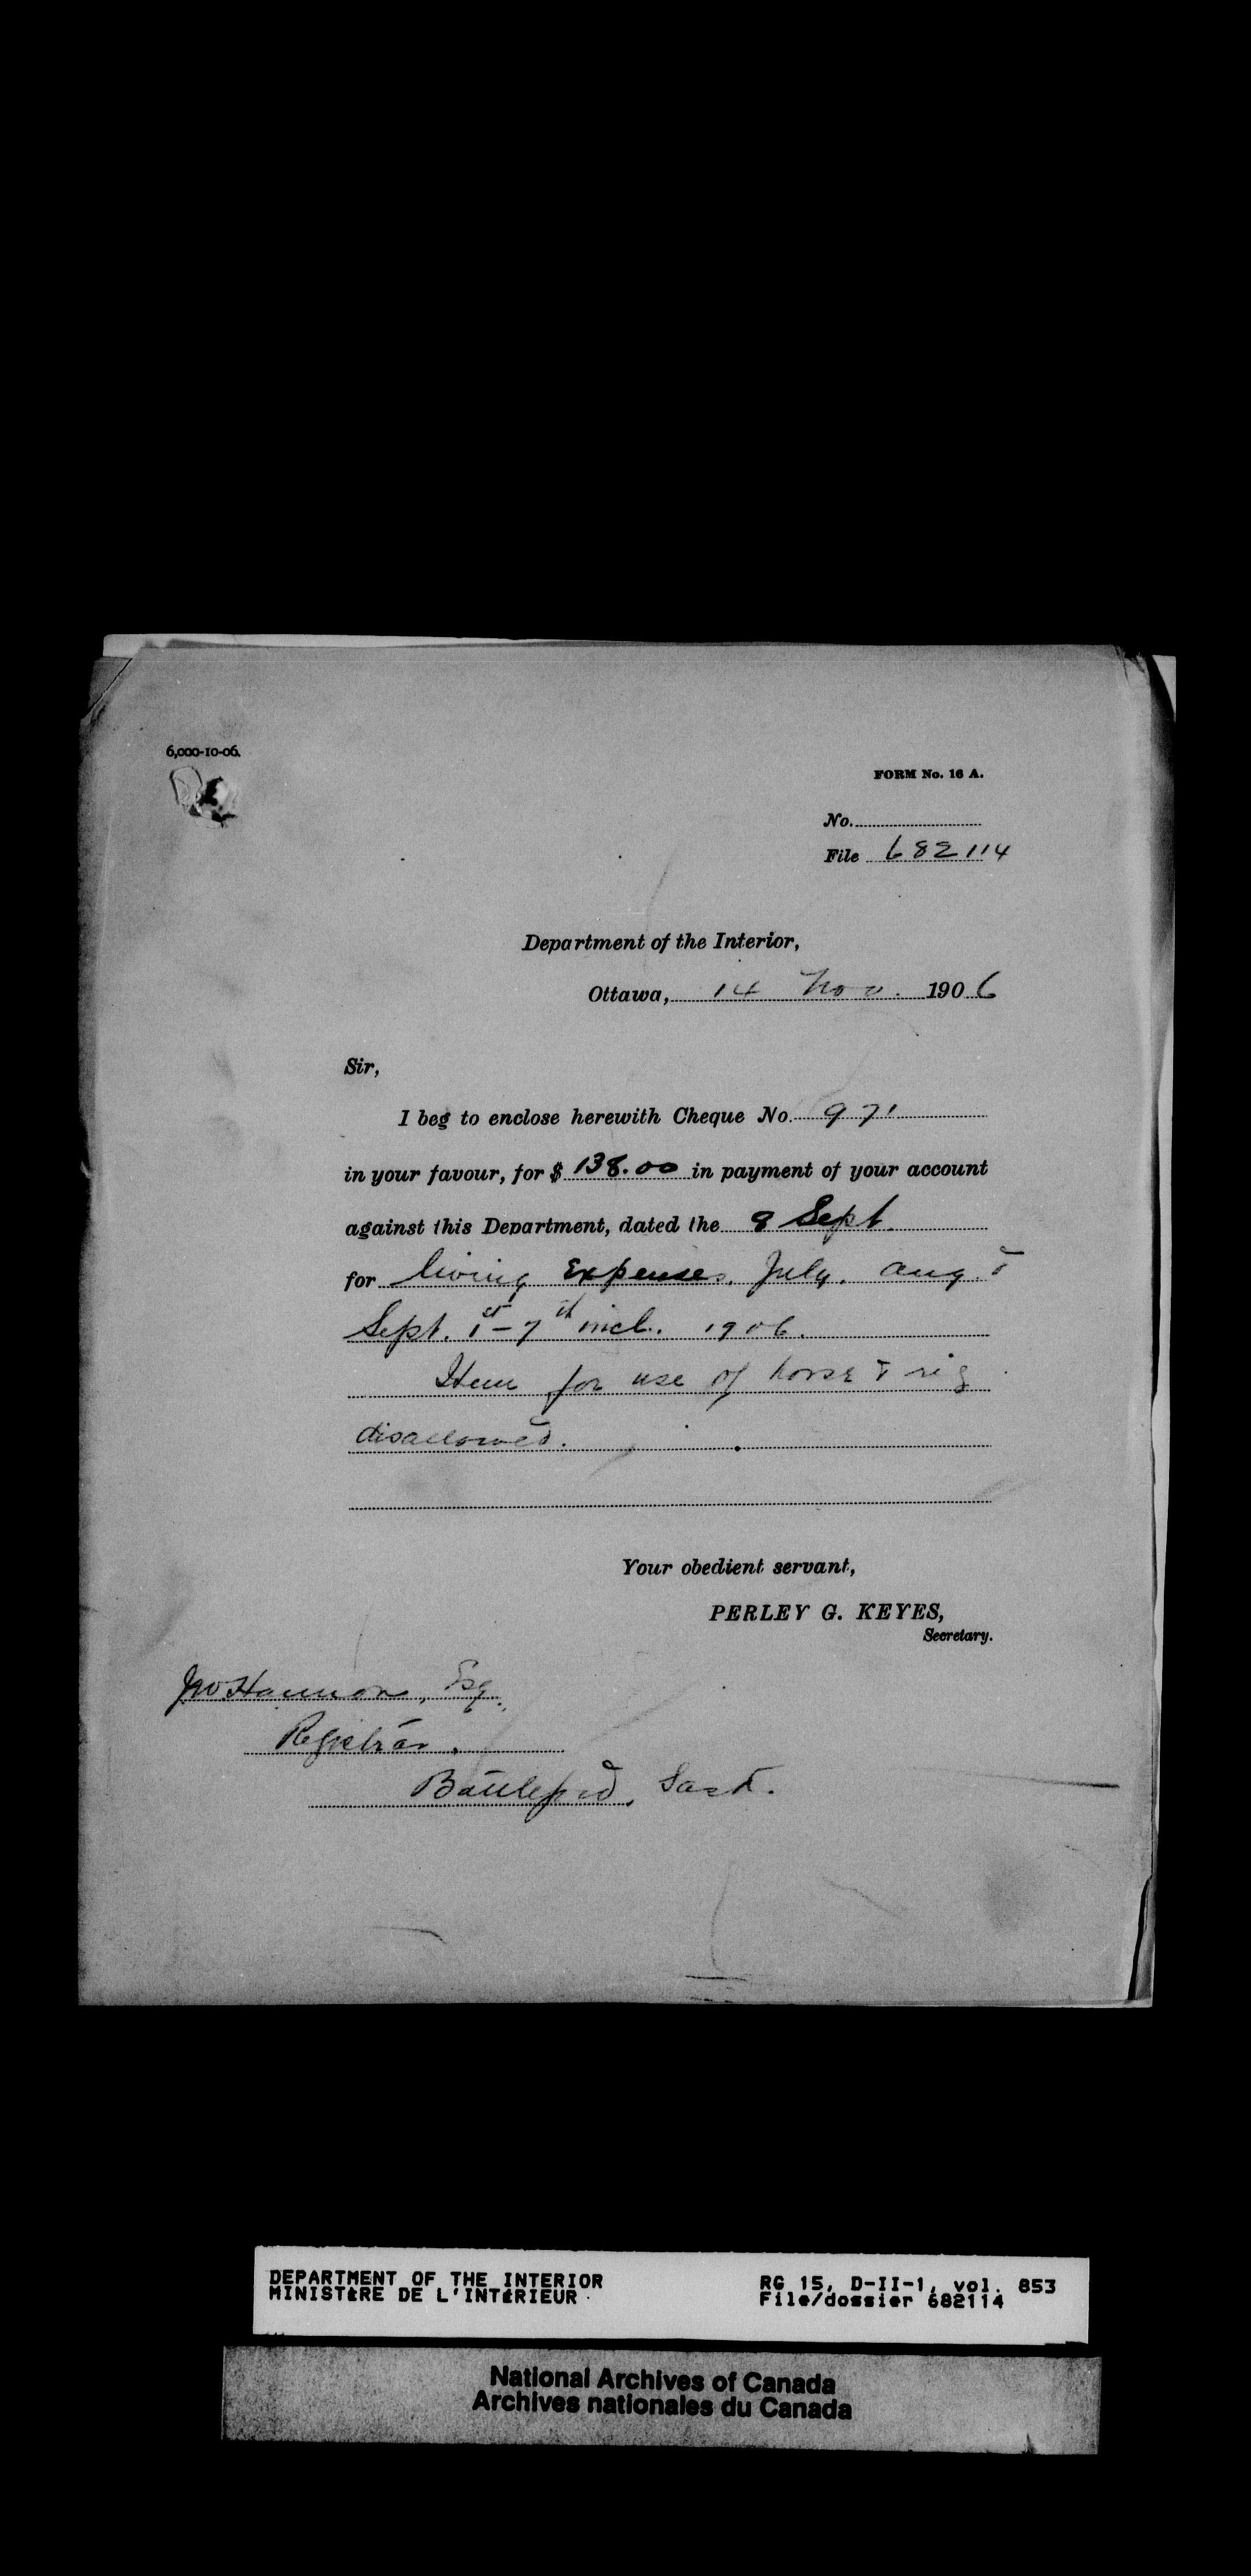 6,000-10-06.
FORM No. 16 A.
No.
File 682114
Department of the Interior,
Ottawa, 14 Nov. 1906
Sir,
I beg to enclose herewith Cheque No. 971
in your favour, for $ 138.00 in payment of your account
against this Department, dated the 8 Sept.
for living Expenses. July. Aug. &
Sept. 1st - 7th incl. 1906.
Item for use of horse & rig
disallowed.
Your obedient servant,
PERLEY G. KEYES,
Secretary.
Hannon, Esq.
Registrar.
Battleford, Sask.
DEPARTMENT OF THE INTERIOR
MINISTÈRE DE L'INTÉRIEUR
RG 15, D-II-1, vol. 853
File/dossier 682114
National Archives of Canada
Archives nationales du Canada